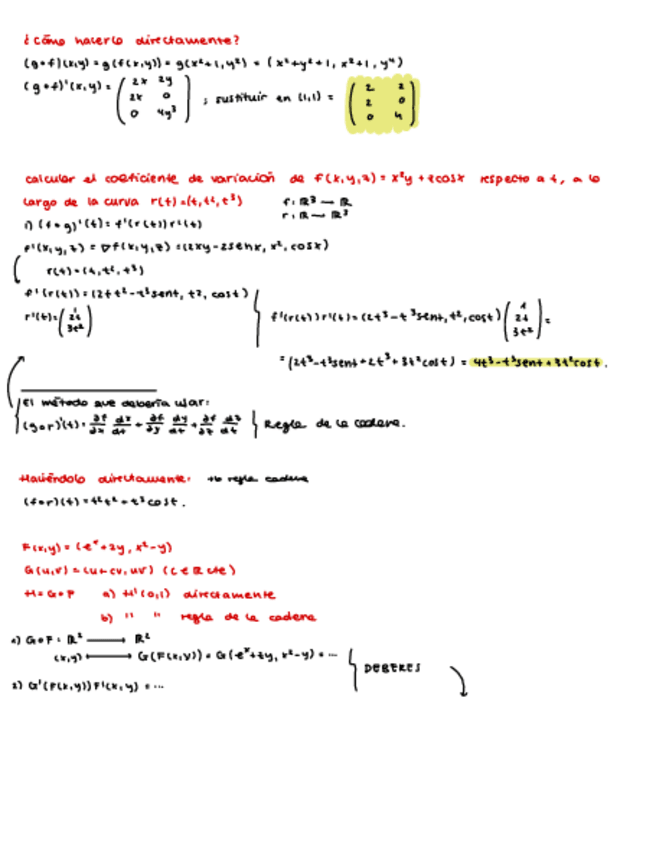 ¿Cómo hacerlo directamente?
(g∘f)(x,y) = g(f(x,y)) = g(x²+1, y²) = (x²+y²+1, x²+1, y⁴)
(g∘f)'(x,y) = (2x 2y / 2x 0 / 0 4y³) ; sustituir en (1,1) = (2 2 / 2 0 / 0 4)
calcular el coeficiente de variación de f(x,y,z) = x²y + zcosx respecto a t, a lo
largo de la curva r(t) = (t, t², t³) f: ℝ³ → ℝ
r: ℝ → ℝ³
1) (f∘g)'(t) = f'(r(t)) r'(t)
f'(x,y,z) = ∇f(x,y,z) = (2xy - zsenx, x², cosx)
r(t) = (t, t², t³)
f'(r(t)) = (2t t² - t³sent, t², cost)
r'(t) = (1 / 2t / 3t²) f'(r(t)) r'(t) = (2t³ - t³sent, t², cost) (1 / 2t / 3t²) =
= (2t³ - t³sent + 2t³ + 3t²cost) = 4t³ - t³sent + 3t²cost.
El método que debería usar:
(g∘r)'(t) = ∂f/∂x dx/dt + ∂f/∂y dy/dt + ∂f/∂z dz/dt Regla de la cadena.
Haciéndolo directamente: no regla cadena
(f∘r)(t) = t²t² + t³cost.
F(x,y) = (eˣ+2y, x²-y)
G(u,v) = (u+cv, uv) (c ∈ ℝ cte)
H = G∘F a) H'(0,1) directamente
b) " " regla de la cadena
1) G∘F: ℝ² → ℝ²
(x,y) → G(F(x,y)) = G(eˣ+2y, x²-y) = ... DEBERES
2) G'(F(x,y)) F'(x,y) = ...